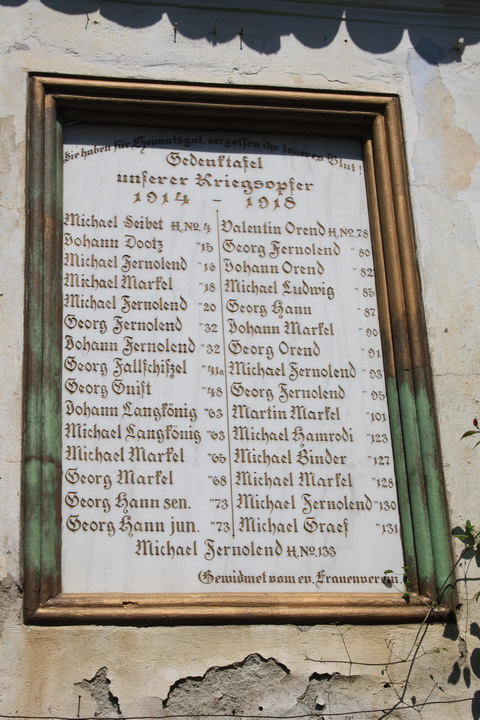 Sie haben für Heimatsgut, vergossen ihr teueres Blut!
Gedenktafel
unserer Kriegsopfer
1914 - 1918
Michael Seibet H.No. 4
Johann Dootz "15
Michael Fernolend "16
Michael Markel "18
Michael Fernolend "20
Georg Fernolend "32
Johann Fernolend "32
Georg Fallschißel "41a
Georg Guist "48
Johann Langkönig "63
Michael Langkönig "63
Michael Markel "65
Georg Markel "68
Georg Hann sen. "73
Georg Hann jun. "73
Valentin Orend H.No. 78
Georg Fernolend "80
Johann Orend "82
Michael Ludwig "85
Georg Hann "87
Johann Markel "90
Georg Orend "91
Michael Fernolend "93
Georg Fernolend "95
Martin Markel "101
Michael Hamrodi "123
Michael Binder "127
Michael Markel "128
Michael Fernolend "130
Michael Graef "131
Michael Fernolend H.No. 133
Gewidmet vom ev. Frauenverein